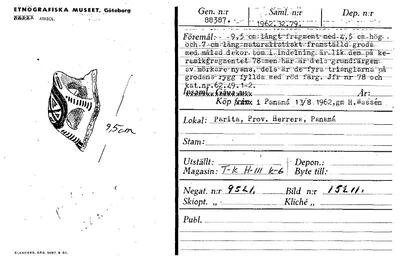 ETNOGRAFISKA MUSEET, Göteborg
9,5cm
ELANDERS, GBG. 5087. 8. 61.
Gen. n:r Saml. n:r Dep. n:r
88387. 1962.32.79.
Föremål: 9,5 cm långt fragment med 4,5 cm hög
och 7 cm lång naturalistiskt framställd groda
med målad dekor, som i indelning är lik den på ke-
ramikfragmentet 78 men här är dels grundfärgen
av mörkare nyans, dels är de fyra trianglarna på
grodans rygg fyllda med röd färg. Jfr nr 78 och
kat.nr 62.49.1-2.
År:
Köp från: i Panamá 13/8 1962, gm H.Wassén
Lokal: Parita, Prov. Herrera, Panamá
Stam:
Utställt: Depon.:
Magasin: T-K H-III K-6 Byte till:
Negat. n:r 9521. Bild n:r 15211.
Skiopt. » Kliché »
Publ.